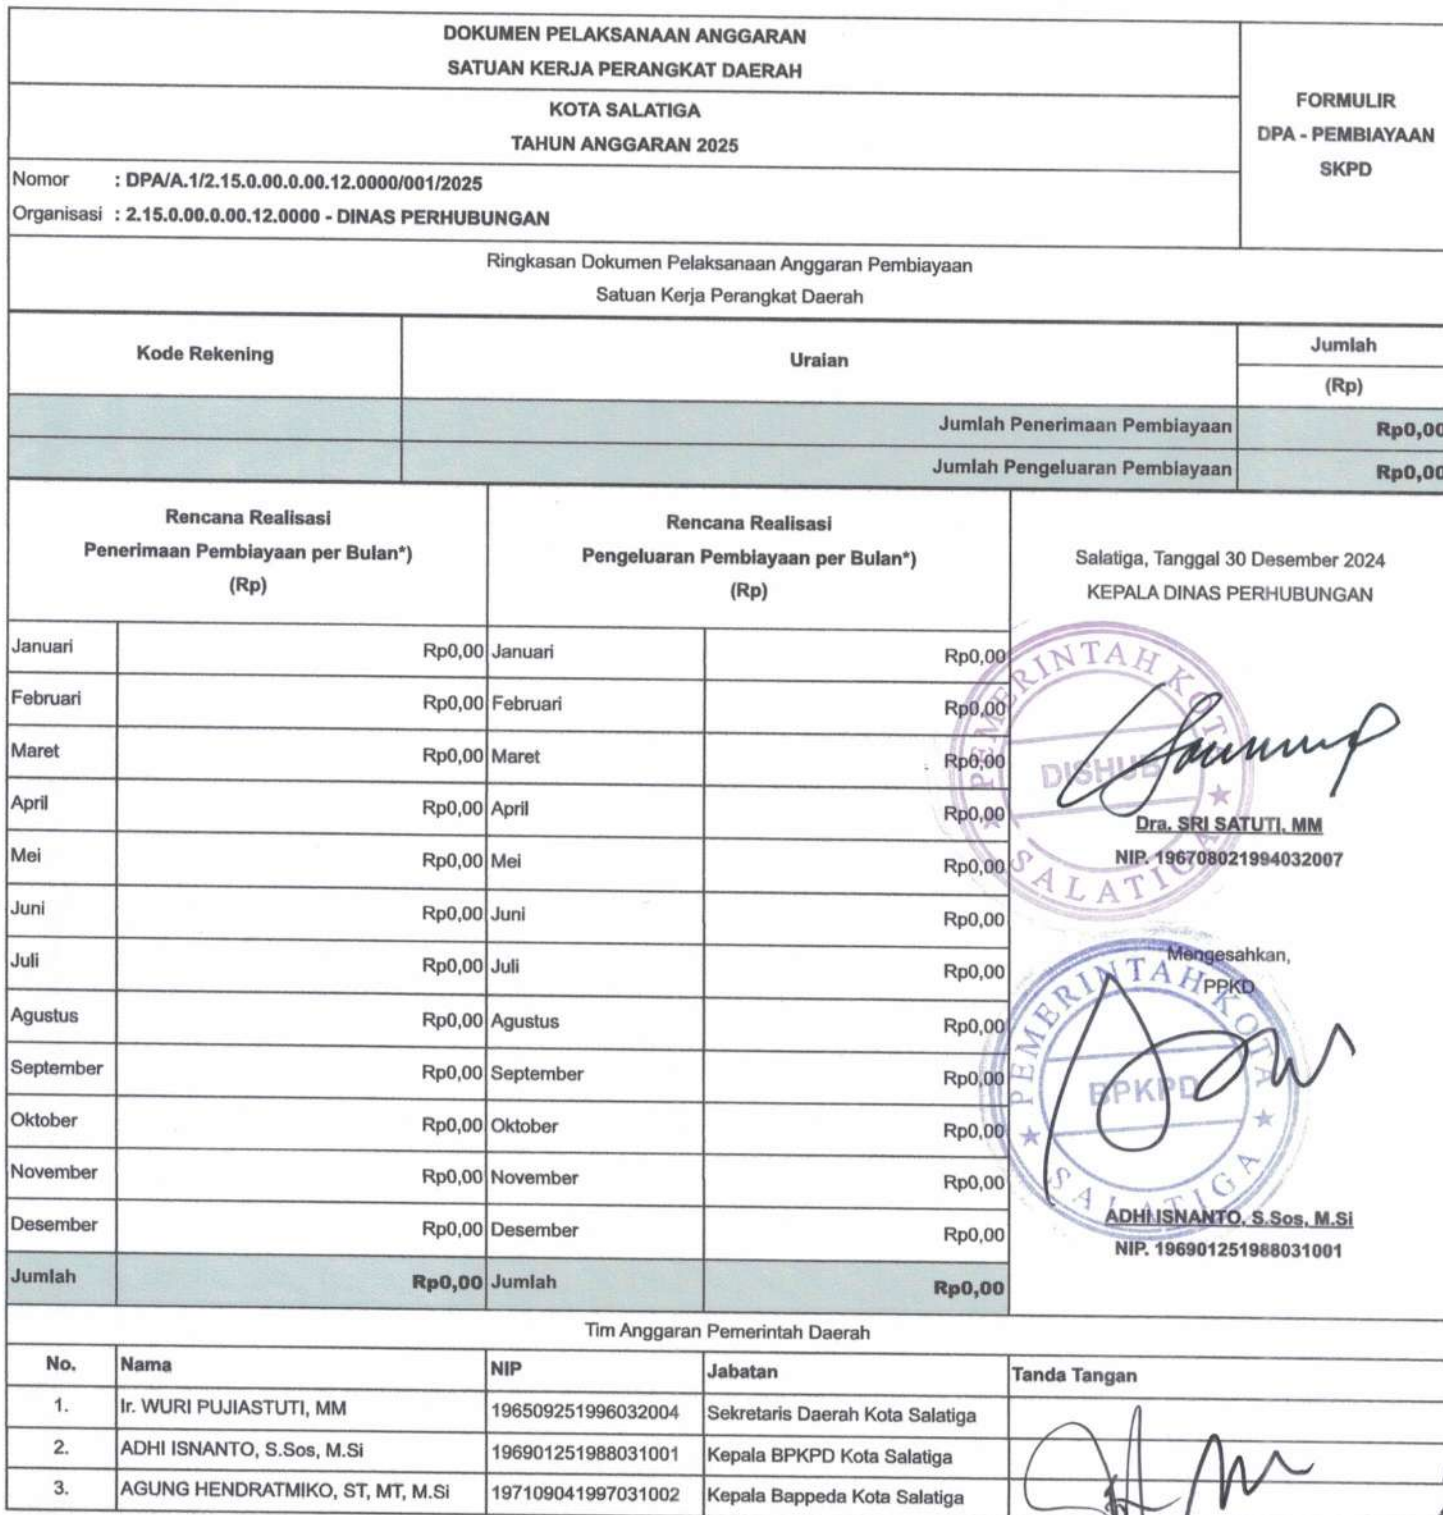 DOKUMEN PELAKSANAAN ANGGARAN
SATUAN KERJA PERANGKAT DAERAH
KOTA SALATIGA
TAHUN ANGGARAN 2025
FORMULIR
DPA - PEMBIAYAAN
SKPD
Nomor : DPA/A.1/2.15.0.00.0.00.12.0000/001/2025
Organisasi : 2.15.0.00.0.00.12.0000 - DINAS PERHUBUNGAN
Ringkasan Dokumen Pelaksanaan Anggaran Pembiayaan
Satuan Kerja Perangkat Daerah
Kode Rekening Uraian Jumlah
(Rp)
Jumlah Penerimaan Pembiayaan Rp0,00
Jumlah Pengeluaran Pembiayaan Rp0,00
Rencana Realisasi
Penerimaan Pembiayaan per Bulan*)
(Rp)
Rencana Realisasi
Pengeluaran Pembiayaan per Bulan*)
(Rp)
Januari Rp0,00 Januari Rp0,00
Februari Rp0,00 Februari Rp0,00
Maret Rp0,00 Maret Rp0,00
April Rp0,00 April Rp0,00
Mei Rp0,00 Mei Rp0,00
Juni Rp0,00 Juni Rp0,00
Juli Rp0,00 Juli Rp0,00
Agustus Rp0,00 Agustus Rp0,00
September Rp0,00 September Rp0,00
Oktober Rp0,00 Oktober Rp0,00
November Rp0,00 November Rp0,00
Desember Rp0,00 Desember Rp0,00
Jumlah Rp0,00 Jumlah Rp0,00
Salatiga, Tanggal 30 Desember 2024
KEPALA DINAS PERHUBUNGAN
PEMERINTAH KOTA
DISHUB
SALATIGA
Dra. SRI SATUTI, MM
NIP. 196708021994032007
Mengesahkan,
PPKD
PEMERINTAH KOTA
BPKPD
SALATIGA
ADHI ISNANTO, S.Sos, M.Si
NIP. 196901251988031001
Tim Anggaran Pemerintah Daerah
No. Nama NIP Jabatan Tanda Tangan
1. Ir. WURI PUJIASTUTI, MM 196509251996032004 Sekretaris Daerah Kota Salatiga
2. ADHI ISNANTO, S.Sos, M.Si 196901251988031001 Kepala BPKPD Kota Salatiga
3. AGUNG HENDRATMIKO, ST, MT, M.Si 197109041997031002 Kepala Bappeda Kota Salatiga